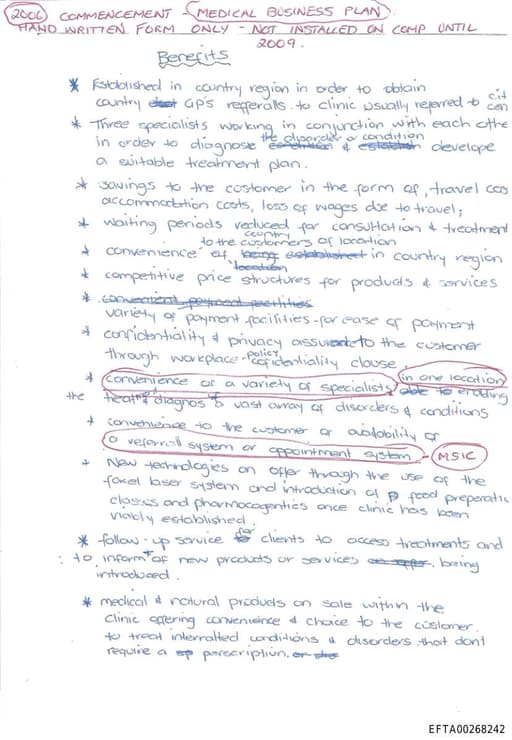 2006 COMMENCEMENT - MEDICAL BUSINESS PLAN
HAND WRITTEN FORM ONLY - NOT INSTALLED ON COMP UNTIL
2009.
Benefits
* Established in country region in order to obtain
country GP'S refferalls. to clinic usually referred to cit
cen
* Three specialists working in conjunction with each othe
the disorder or condition
in order to diagnose condition & establish develope
a suitable treatment plan.
* savings to the customer in the form of, travel cos
accommodation costs, loss of wages due to travel;
* waiting periods reduced for consultation & treatment
country
to the customers of location
* convenience of, being established in country region
location
* competitive price structures for products & services
* convenient payment facilities
variety of payment facilities - for ease of payment
* confidentiality & privacy assured to the customer
through workplace - policy confidentiality clause
* convenience of a variety of specialists in one location able to enabling
the treat diagnos & vast array of disorders & conditions
* convenience to the customer or availability of
a referrall system or appointment system - MSIC
* New technologies on offer through the use of the
laser system and introduction of food preperatic
classes and pharmocogentics once clinic has been
viably established.
* follow-up service for clients to access treatments and
: to inform of new products or services being
introduced.
* medical & natural products on sale within the
clinic offering convenience & choice to the customer.
to treat interralted conditions & disorders that dont
require a perescription.
EFTA00268242